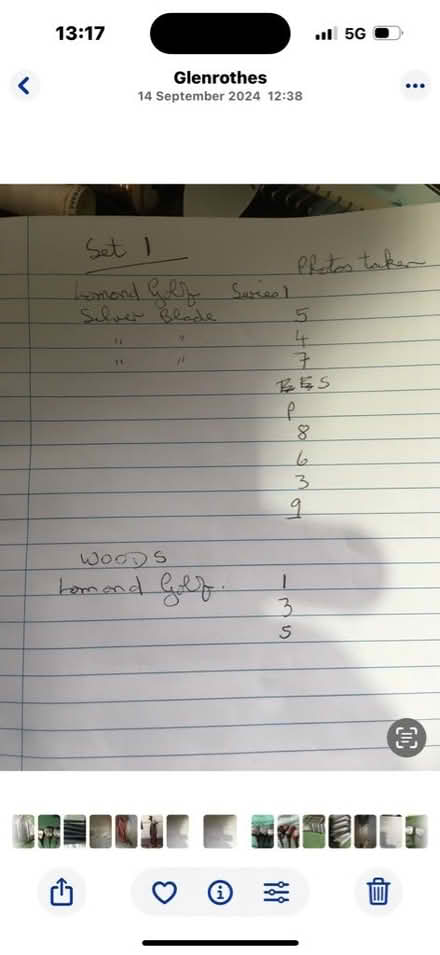 13:17
5G
Glenrothes
14 September 2024 12:38
Set 1
Photos taken
Lomond Golf Series 1
Silver Blade 5
" " 4
" " 7
S
P
8
6
3
9
WOODS
Lomond Golf. 1
3
5